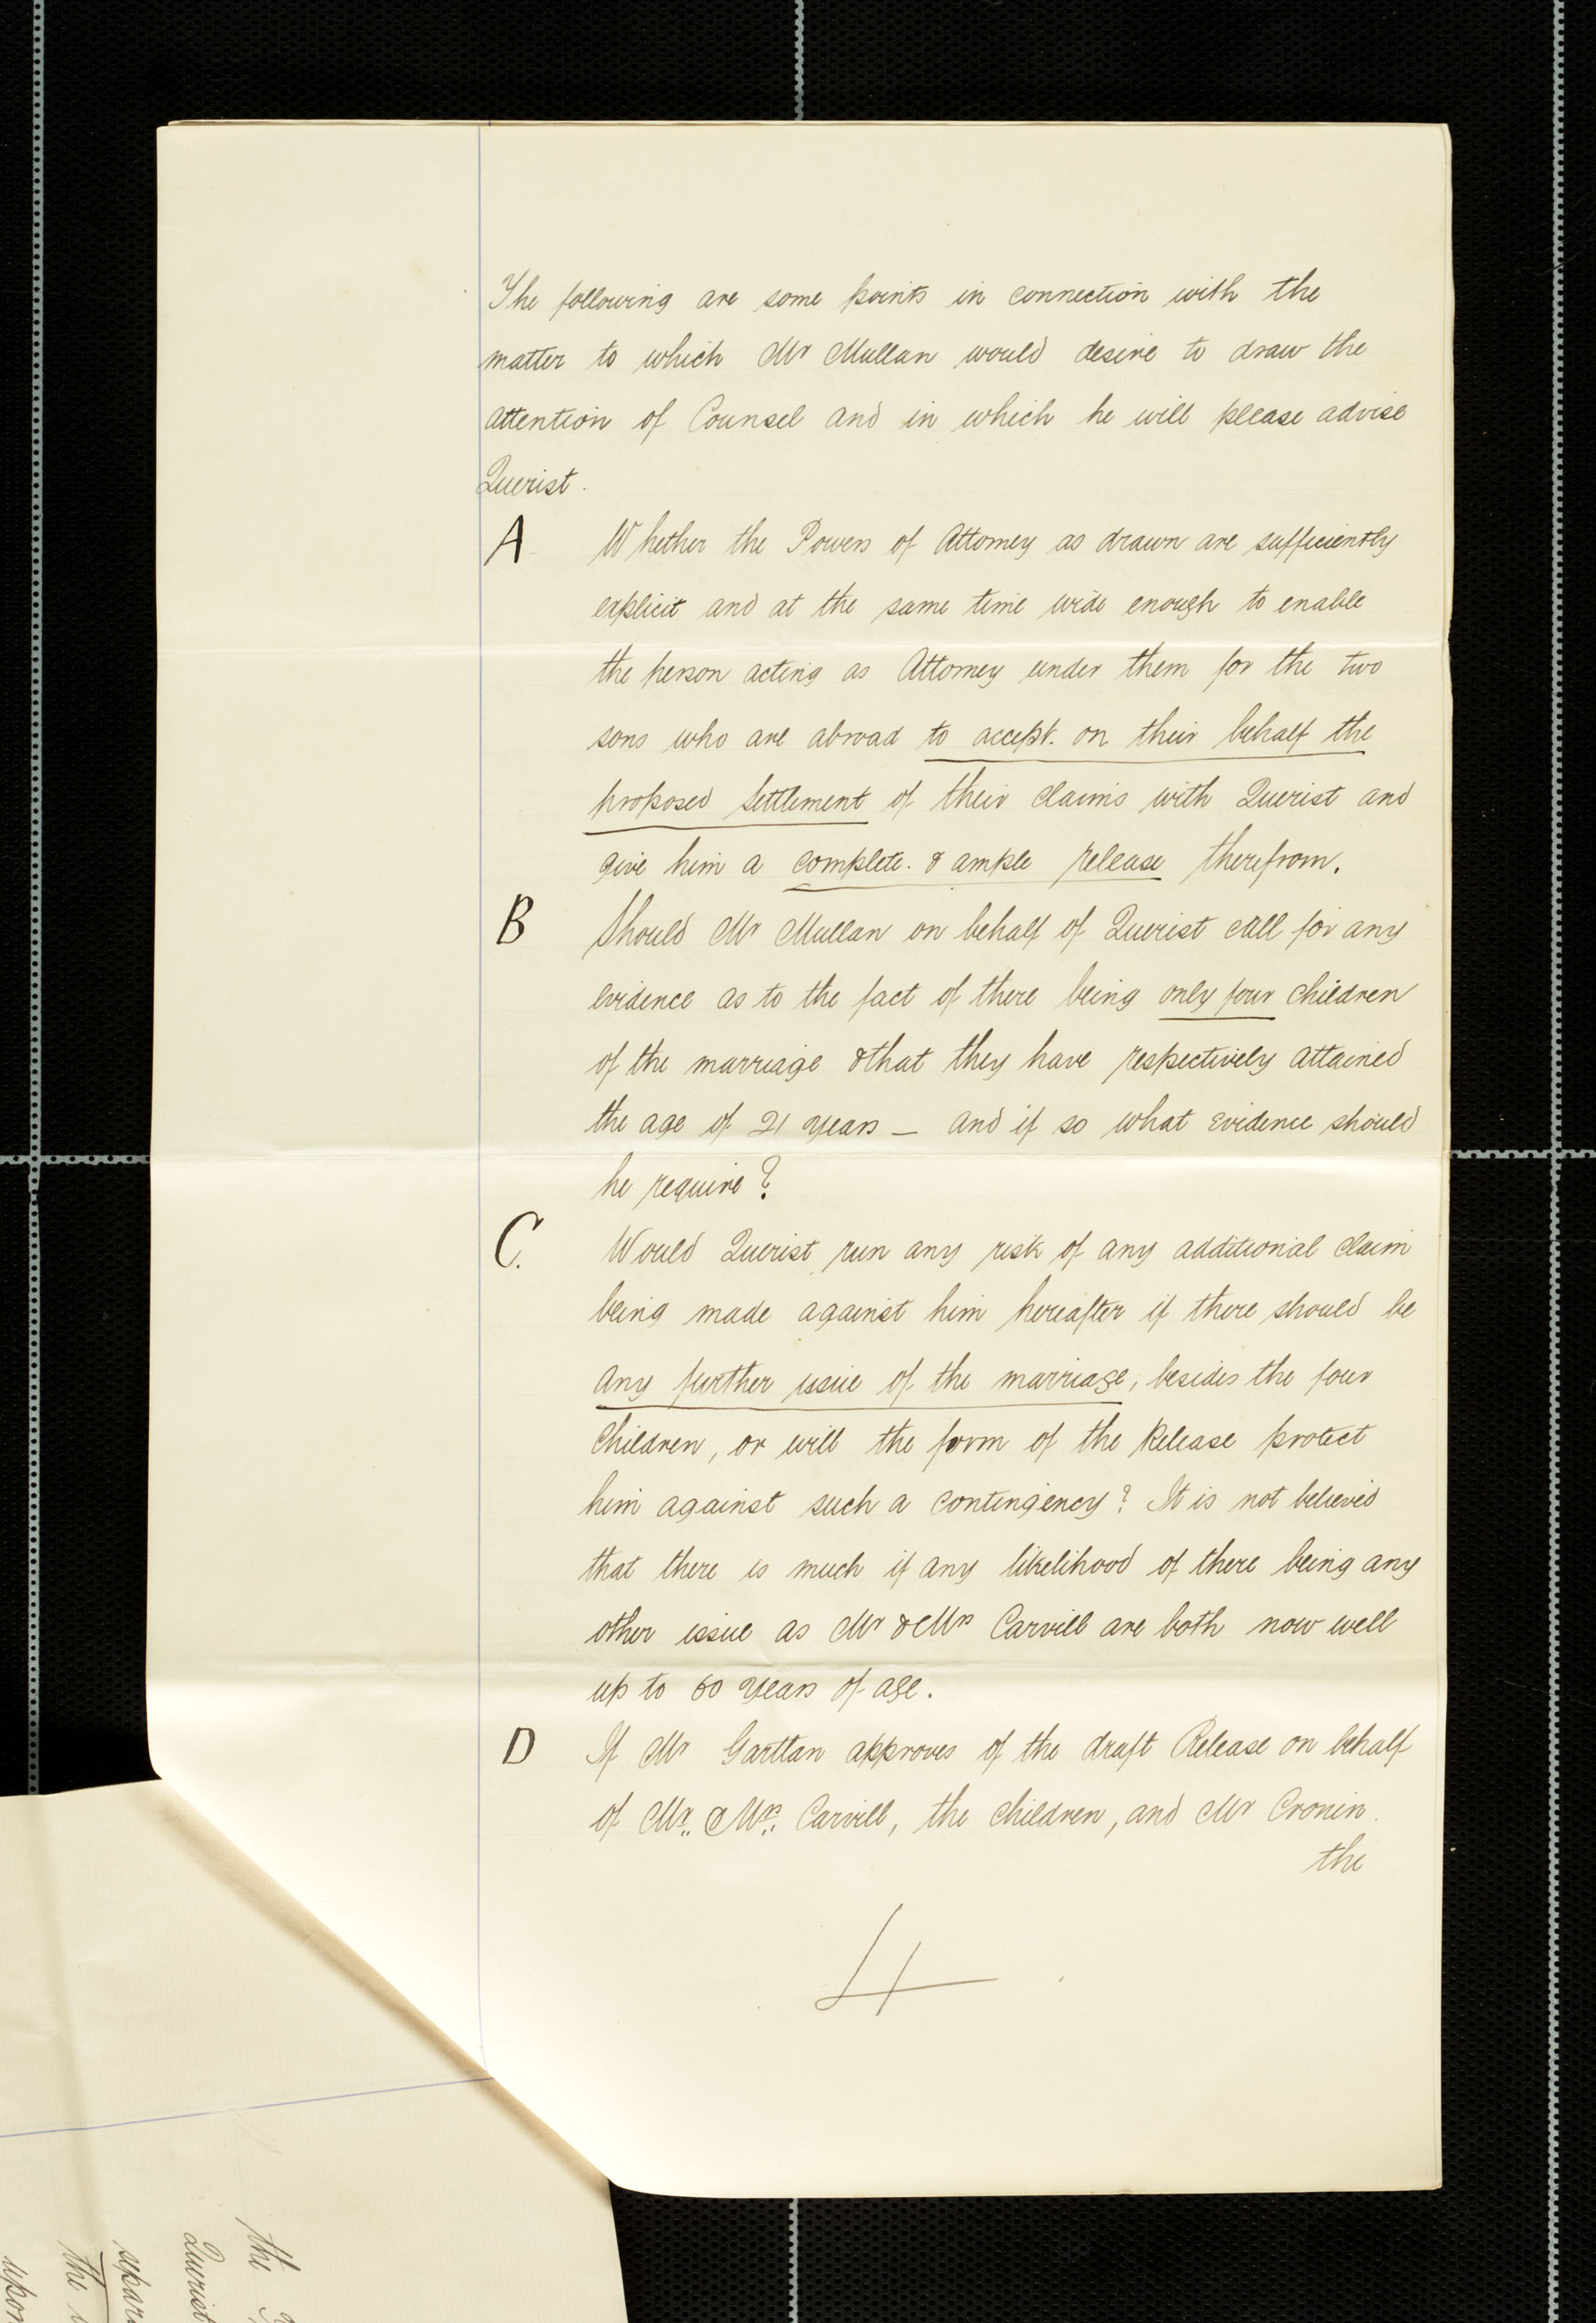 The following are some points in connection with the
matter to which Mr Mullan would desire to draw the
attention of Counsel and in which he will please advise
Querist.
A Whether the Powers of Attorney as drawn are sufficiently
explicit and at the same time wide enough to enable
the person acting as Attorney under them for the two
sons who are abroad to accept. on their behalf the
proposed settlement of their claims with Querist and
give him a complete. & ample release therefrom.
B Should Mr Mullan on behalf of Querist call for any
evidence as to the fact of there being only four children
of the marriage & that they have respectively attained
the age of 21 years — and if so what evidence should
he require?
C. Would Querist run any risk of any additional claim
being made against him hereafter if there should be
any further issue of the marriage, besides the four
children, or will the form of the Release protect
him against such a contingency? It is not believed
that there is much if any likelihood of there being any
other issue as Mr & Mrs Carvill are both now well
up to 60 years of age.
D If Mr Gartlan approves of the draft Release on behalf
of Mr. & Mrs. Carvill, the children, and Mr Cronin.
the
4
the
Querist
the
upon